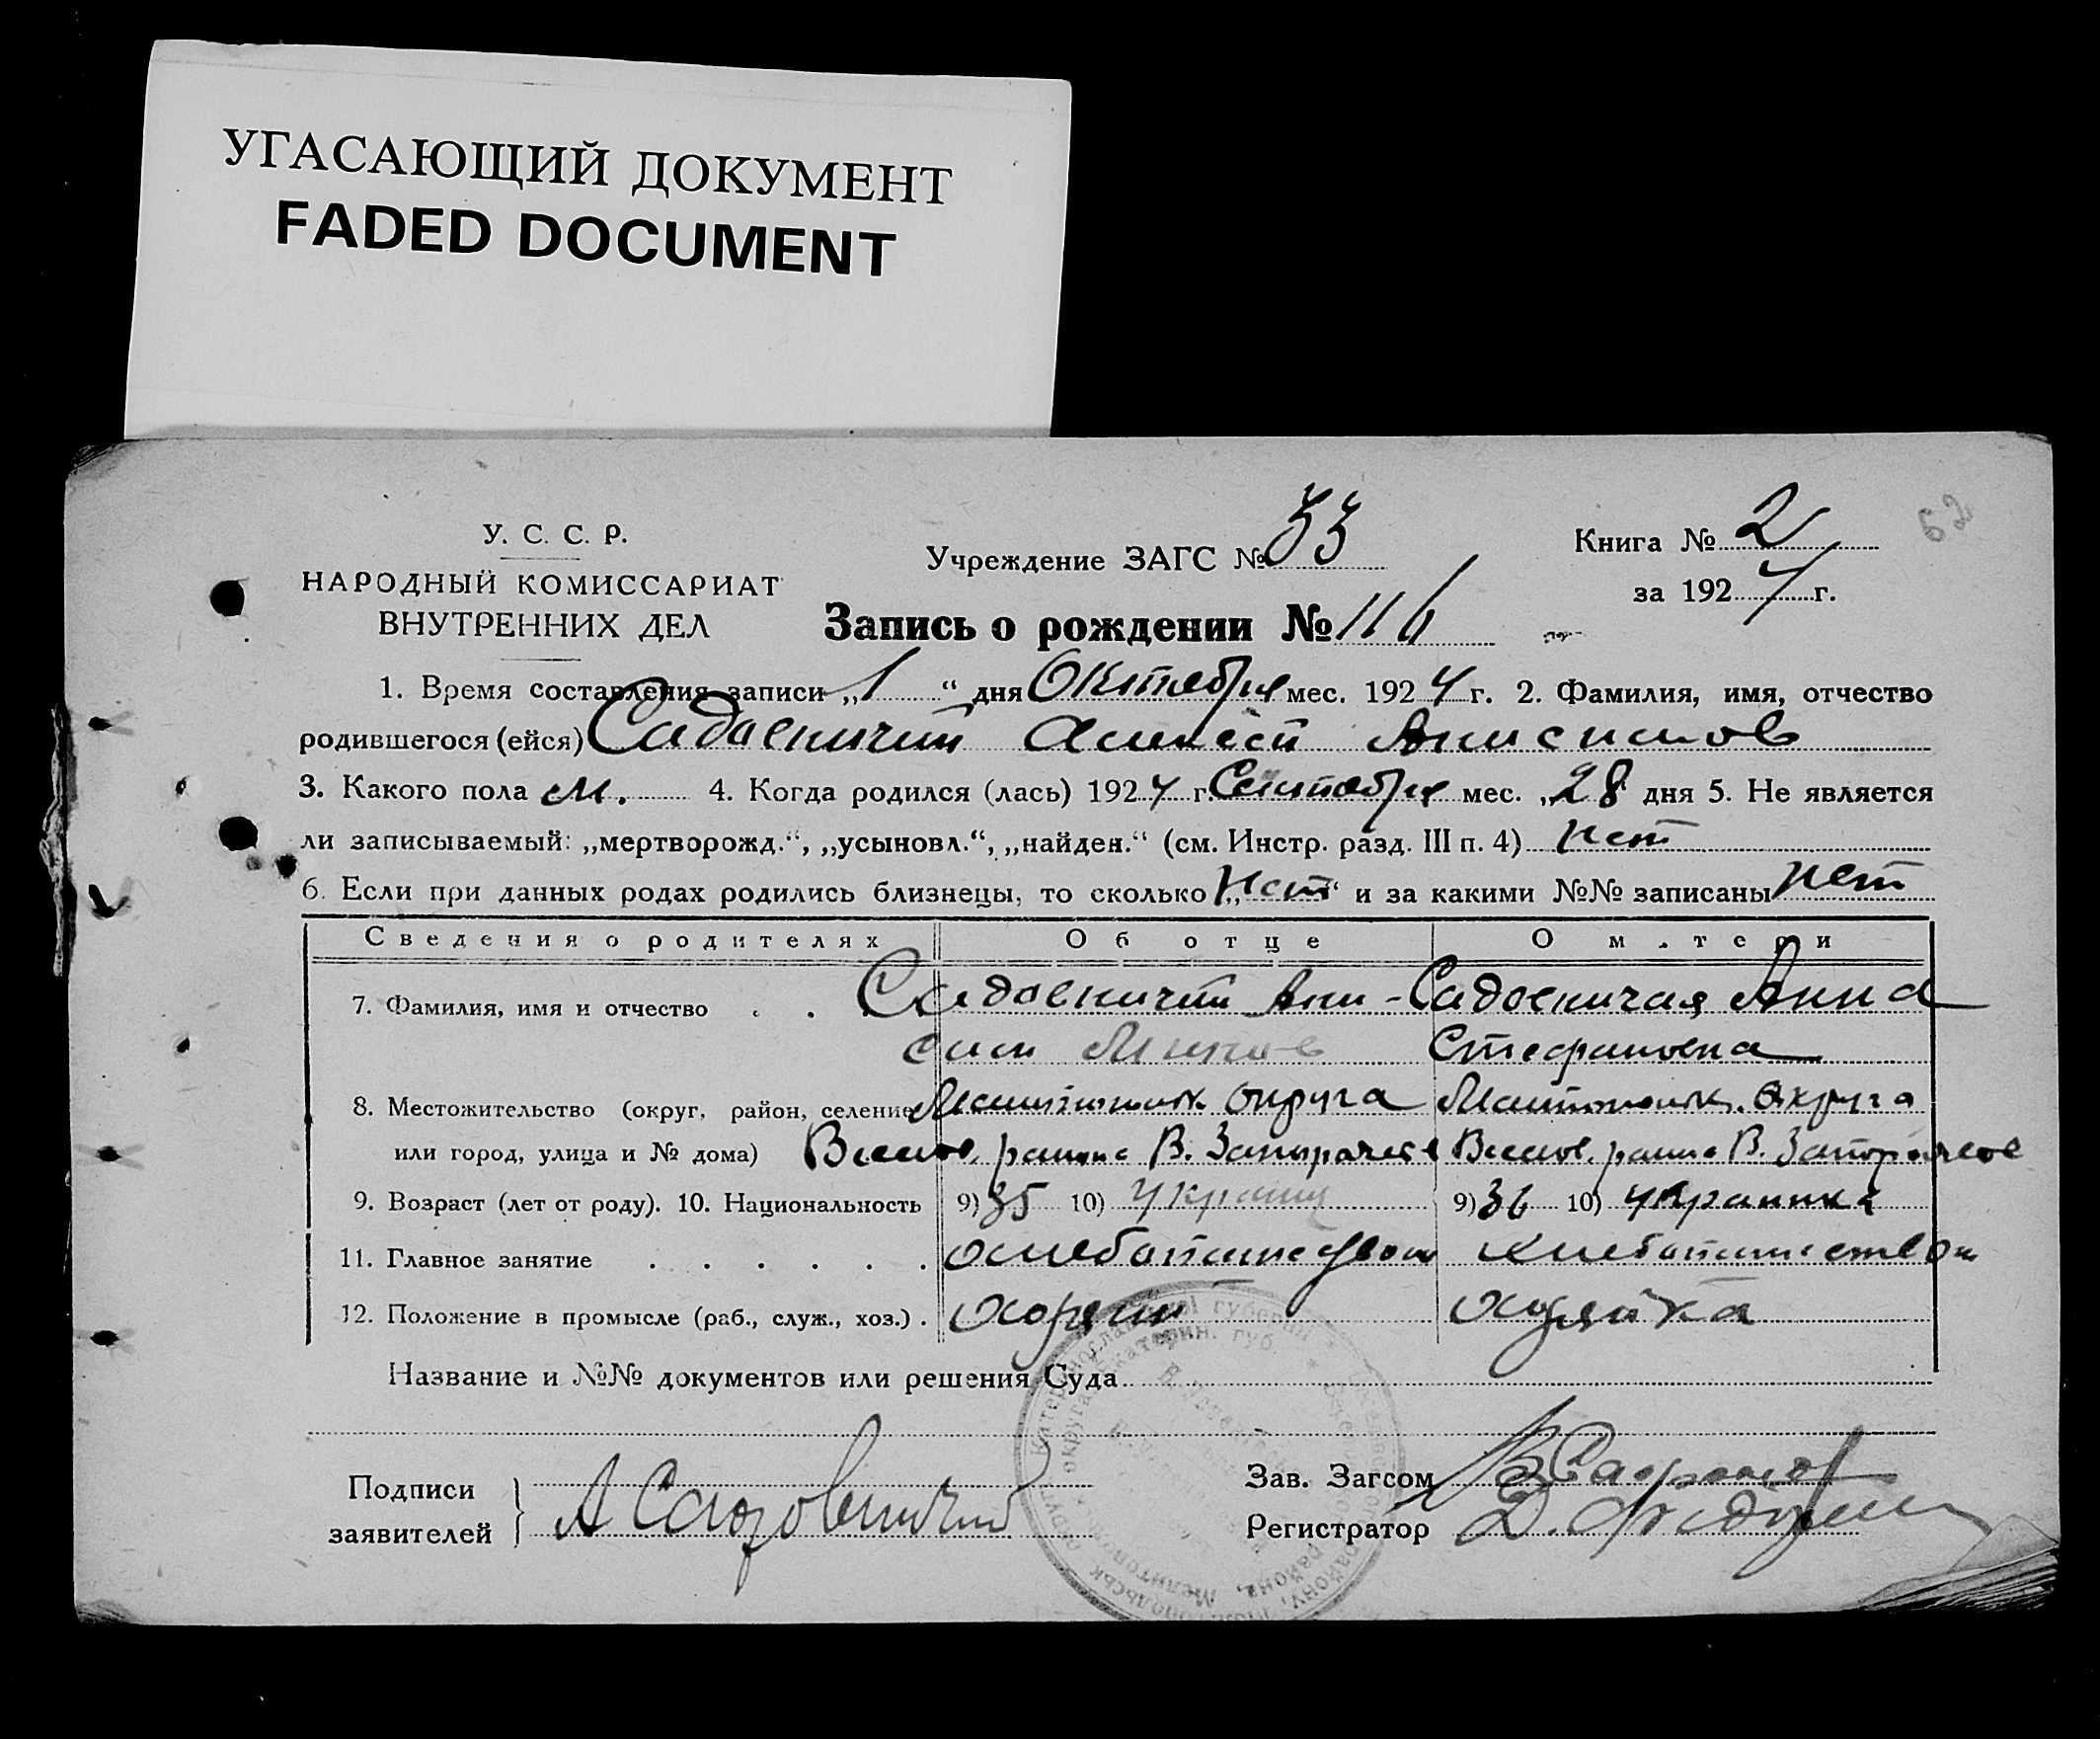 УГАСАЮЩИЙ ДОКУМЕНТ
FADED DOCUMENT
62
У. С. С. Р.
НАРОДНЫЙ КОМИССАРИАТ
ВНУТРЕННИХ ДЕЛ
Учреждение ЗАГС № 33
Книга № 2
за 1924 г.
Запись о рождении № 116
1. Время составления записи „1“ дня Октября мес. 1924 г. 2. Фамилия, имя, отчество
родившегося (ейся) Садовничий Алексей Анисимов
3. Какого пола м. 4. Когда родился (лась) 1924 г. Сентября мес. „28 дня 5. Не является
ли записываемый: „мертворожд.“, „усыновл.“, „найден.“ (см. Инстр. разд. III п. 4) нет
6. Если при данных родах родились близнецы, то сколько „нет“ и за какими №№ записаны нет
Сведения о родителях Об отце О м.тери
7. Фамилия, имя и отчество Садовничий Ани- Садовничая Анна
сим Стефановна
8. Местожительство (округ, район, селение округа округа
или город, улица и № дома) района В. района В.
9. Возраст (лет от роду). 10. Национальность 9) 35 10) украинц 9) 36 10) украинка
11. Главное занятие хлебопашеством хлебопашеством
12. Положение в промысле (раб., служ., хоз.) . хозяин хозяйка
Название и №№ документов или решения Суда
Подписи
заявителей А Садовничий
Зав. Загсом
Регистратор